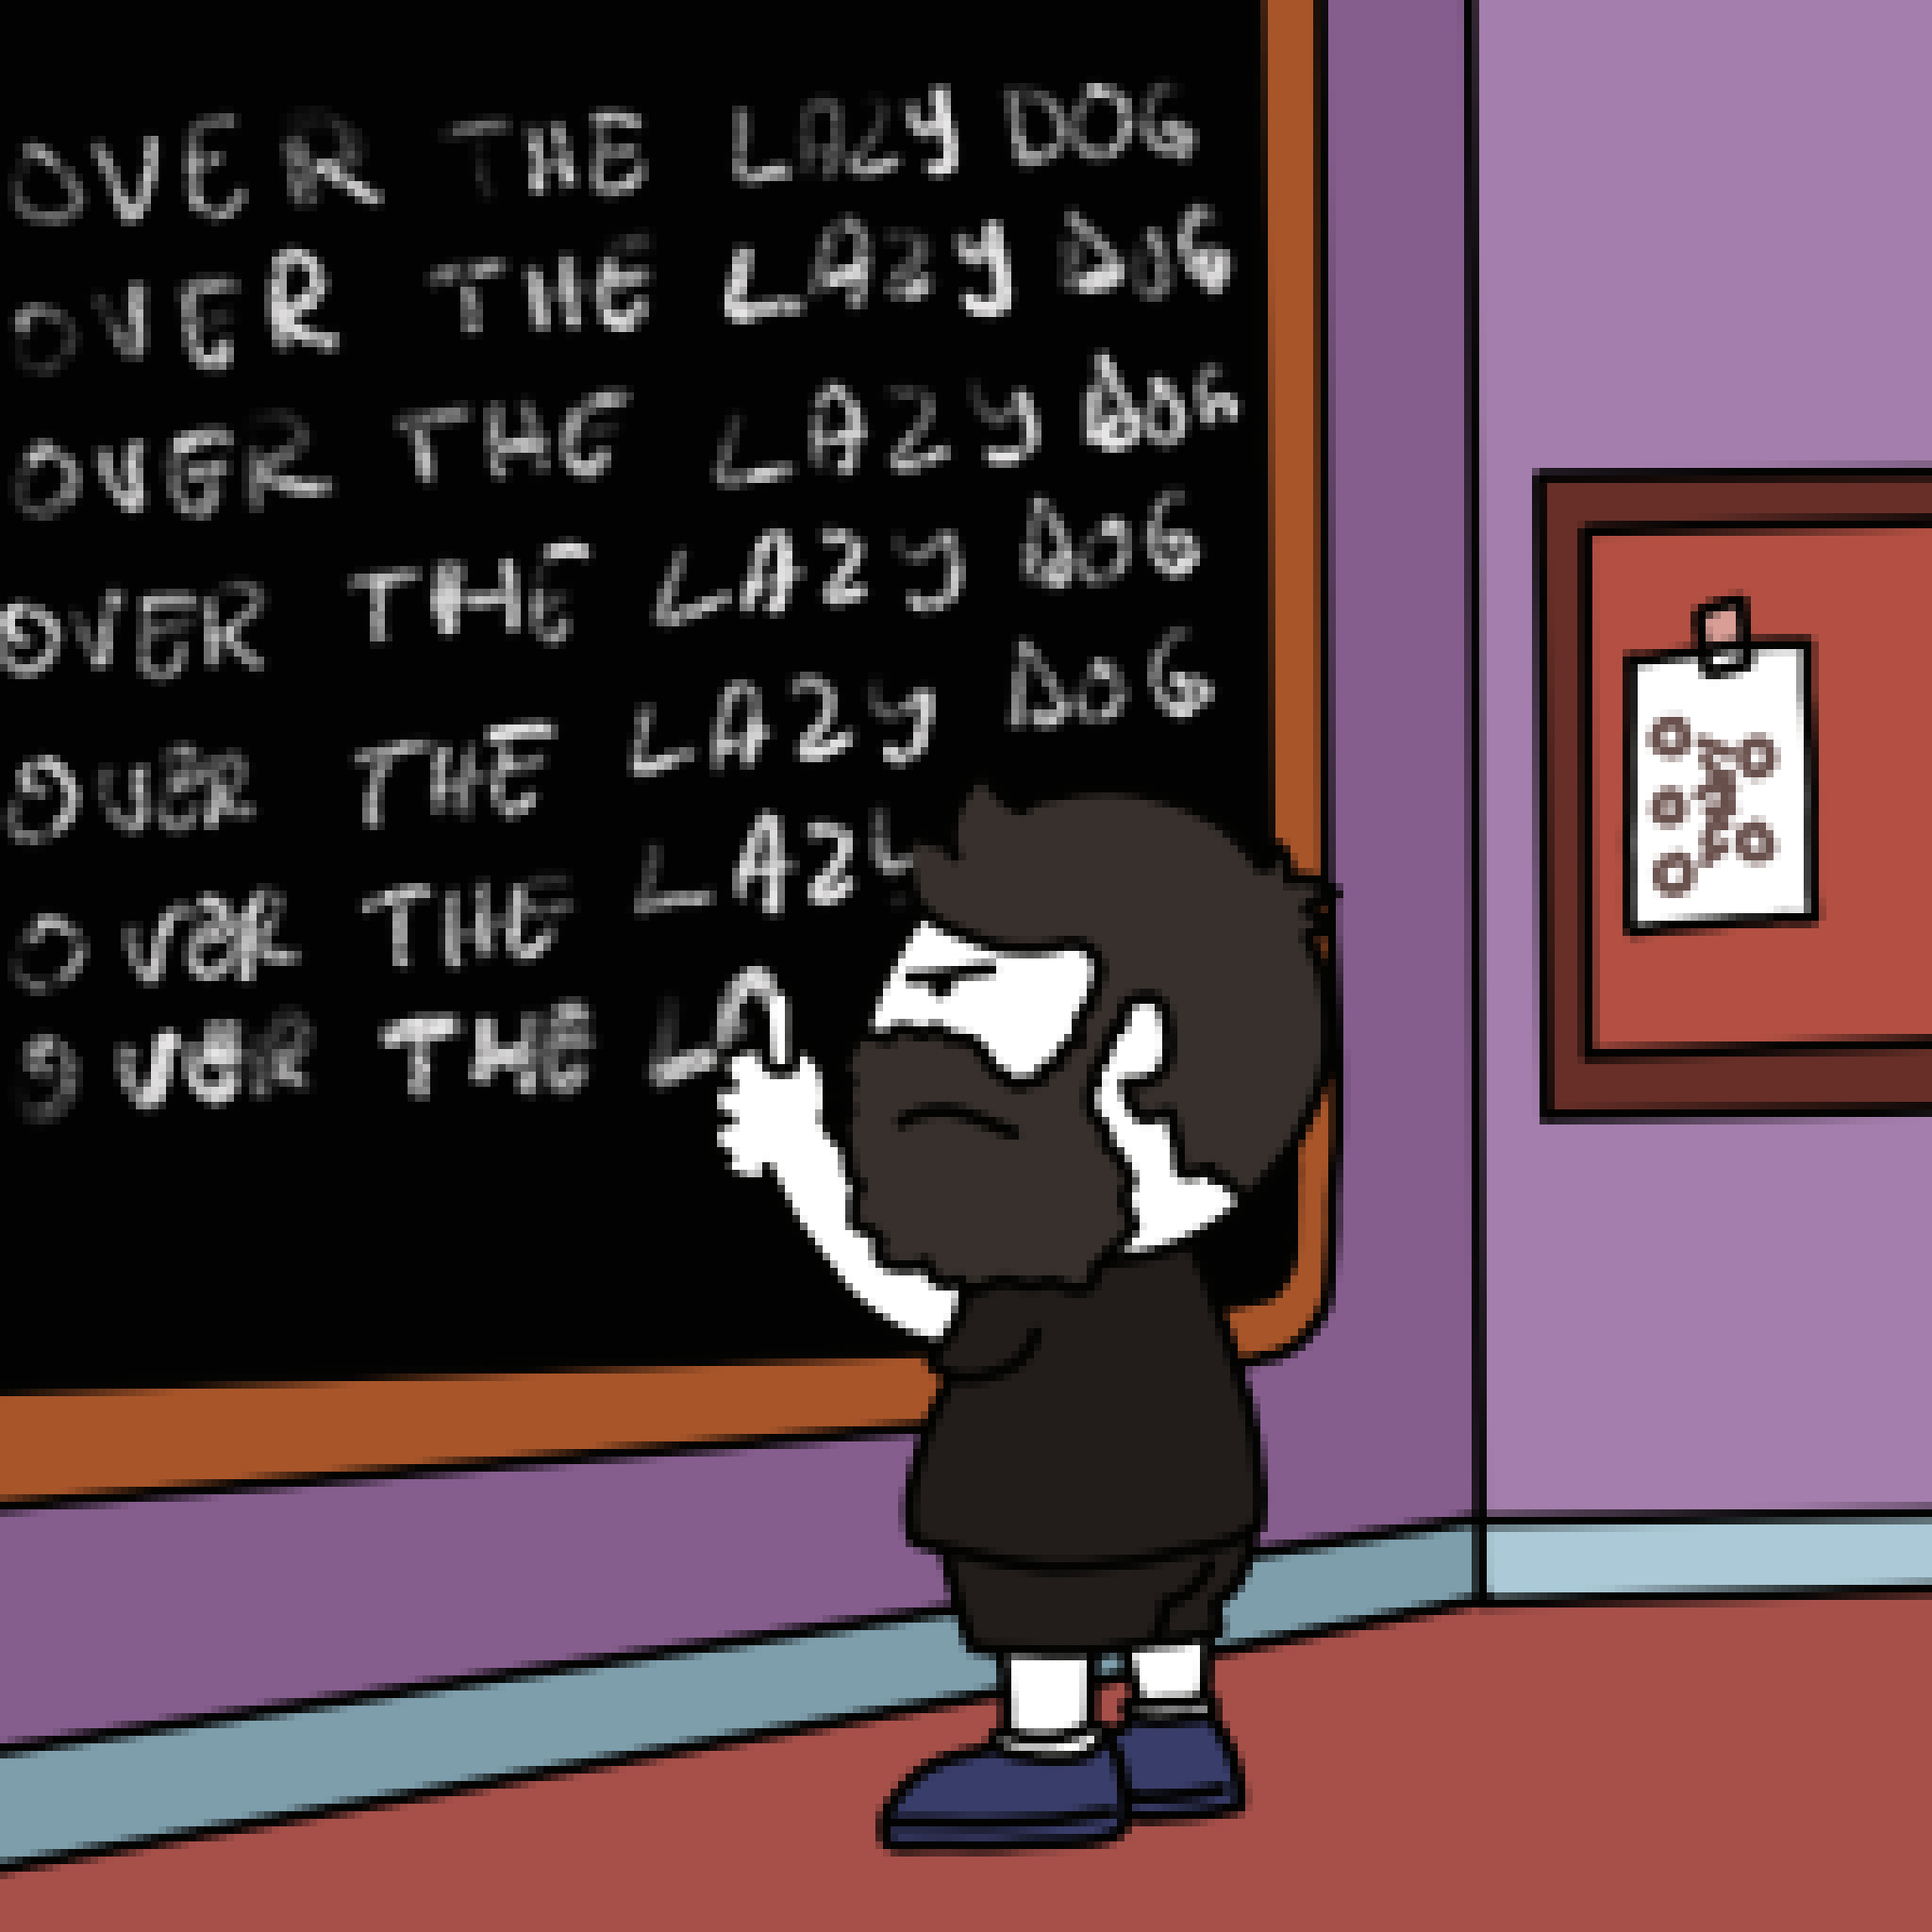 OVER THE LAZY DOG
OVER THE LAZY DOG
OVER THE LAZY DOG
OVER THE LAZY DOG
OVER THE LAZY DOG
OVER THE LAZY
OVER THE LA